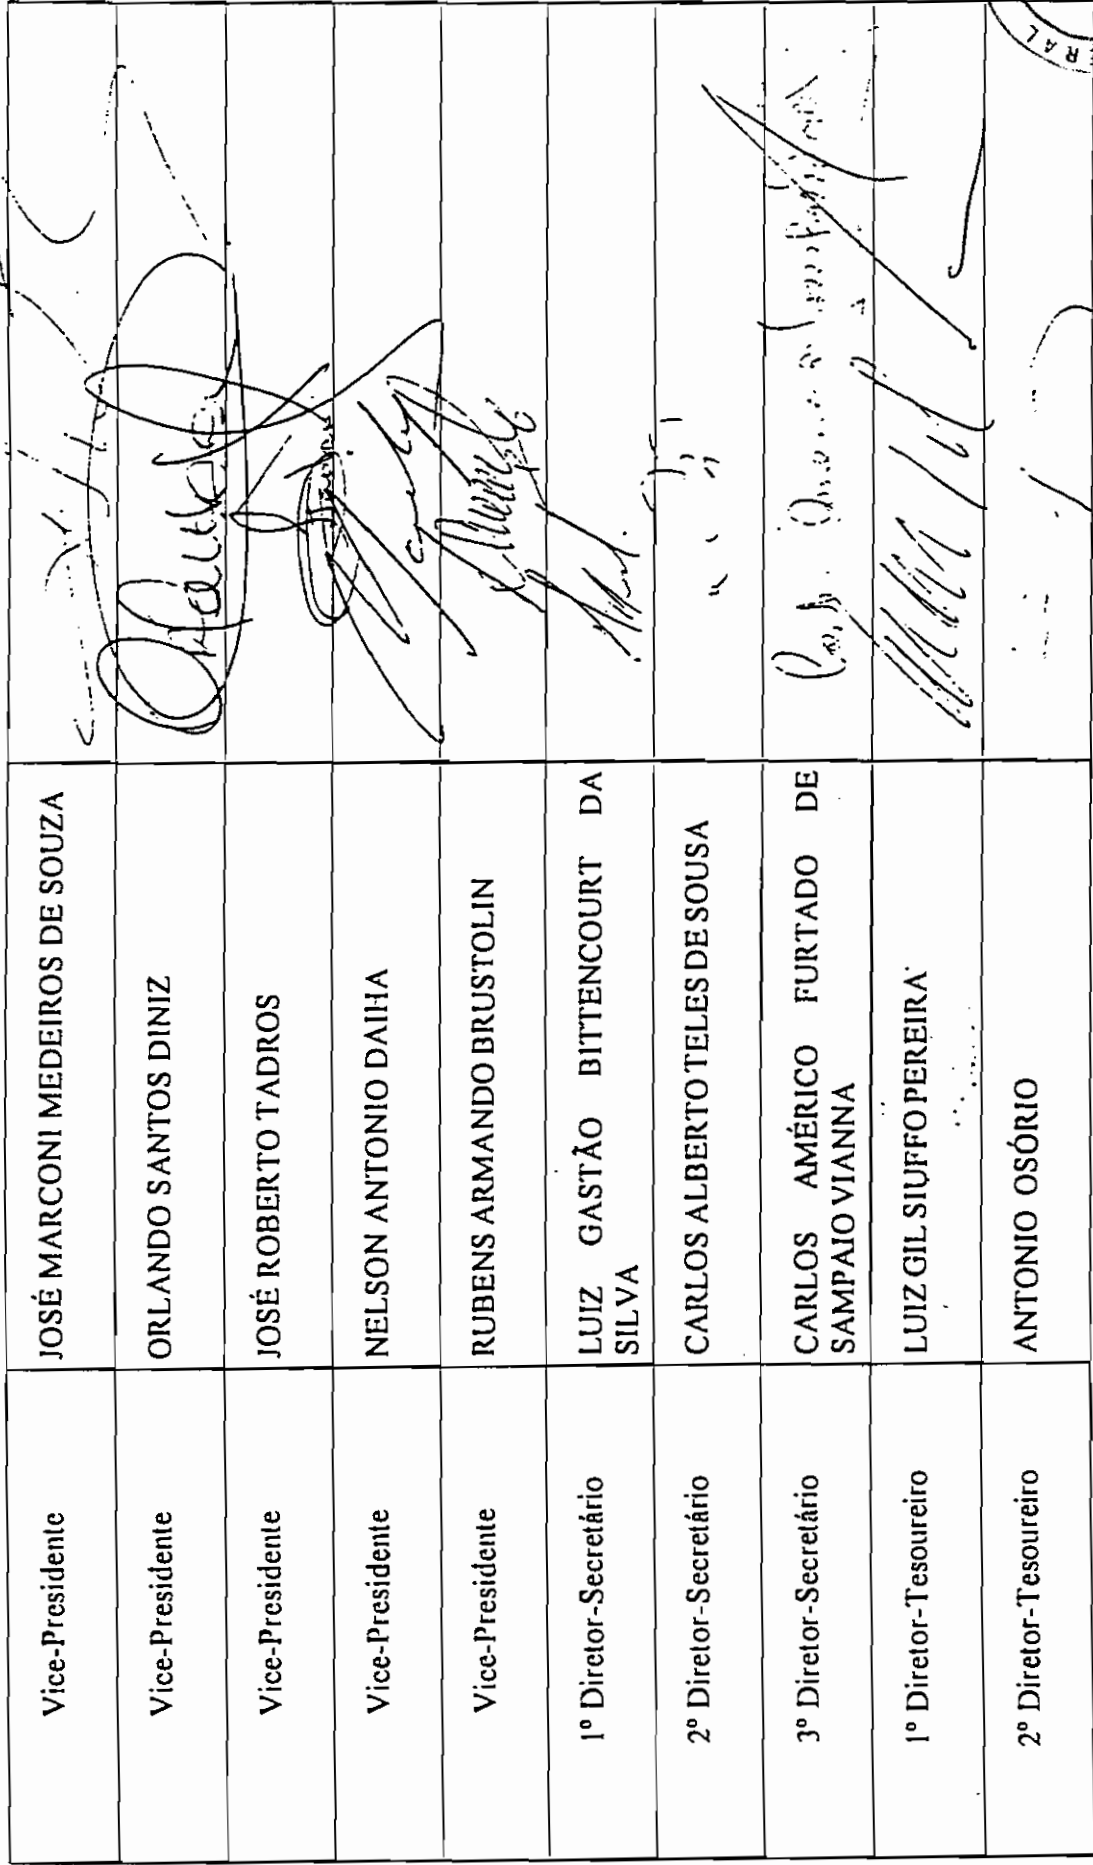 Vice-Presidente JOSÉ MARCONI MEDEIROS DE SOUZA
Vice-Presidente ORLANDO SANTOS DINIZ
Vice-Presidente JOSÉ ROBERTO TADROS
Vice-Presidente NELSON ANTONIO DAIHA
Vice-Presidente RUBENS ARMANDO BRUSTOLIN
1º Diretor-Secretário LUIZ GASTÃO BITTENCOURT DA
SILVA
2º Diretor-Secretário CARLOS ALBERTO TELES DE SOUSA
3º Diretor-Secretário CARLOS AMÉRICO FURTADO DE
SAMPAIO VIANNA
1º Diretor-Tesoureiro LUIZ GIL SIUFFO PEREIRA
2º Diretor-Tesoureiro ANTONIO OSÓRIO